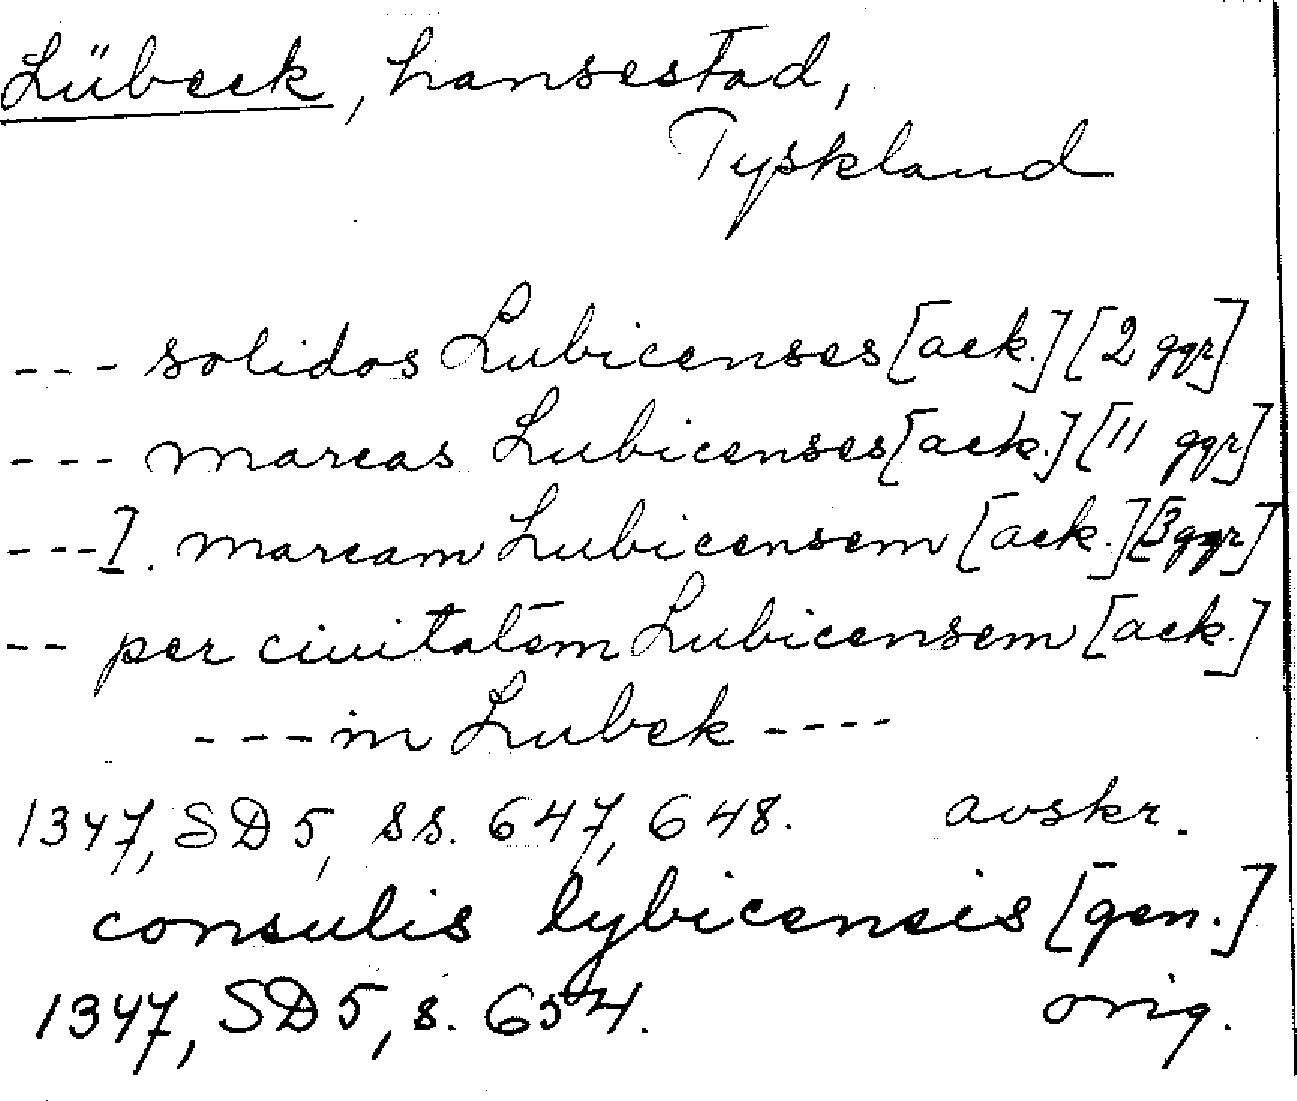 Lübeck, hansestad,
Tyskland
--- solidos Lubicenses [ack.] [2 ggr]
--- marcas Lubicenses [ack.] [11 ggr]
--- I. marcam Lubicensem [ack.] [3 ggr]
-- per ciuitatem Lubicensem [ack.]
--- in Lubek ----
1347, SD 5, ss. 647, 648. avskr.
consulis lybicensis [gen.]
1347, SD 5, s. 654. orig.